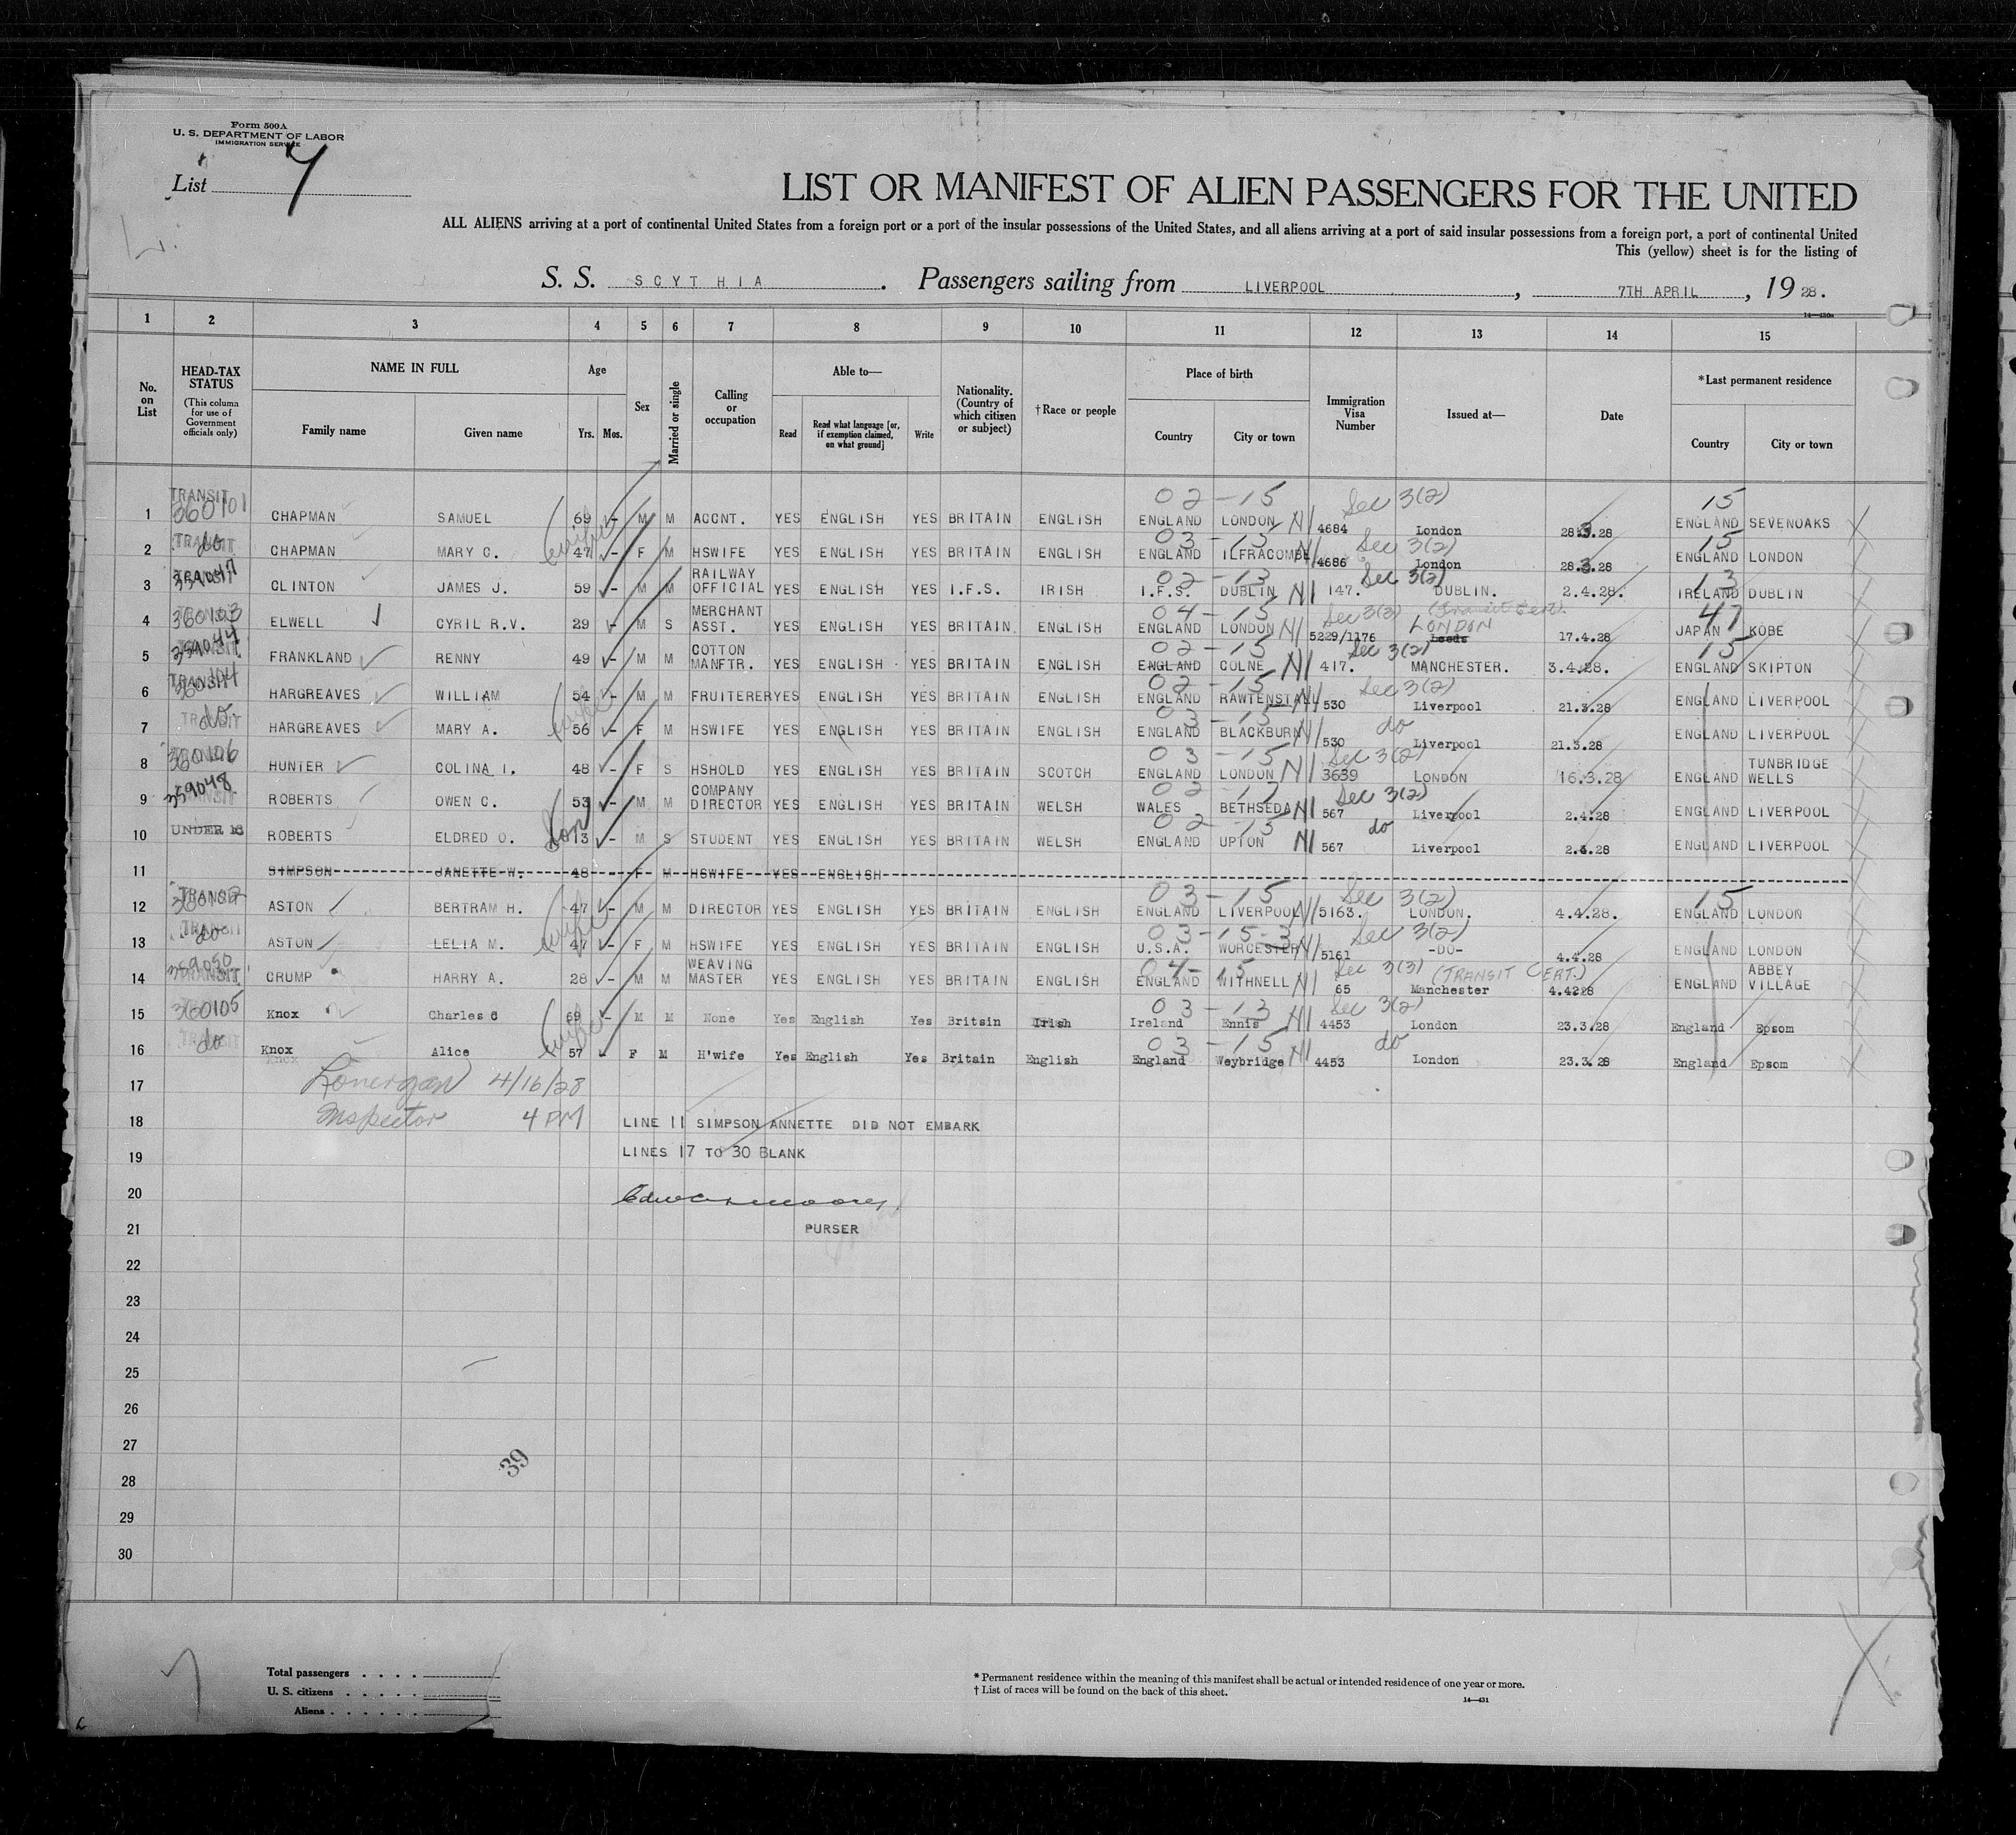 Form 500A
U. S. DEPARTMENT OF LABOR
IMMIGRATION SERVICE
List 7
LIST OR MANIFEST OF ALIEN PASSENGERS FOR THE UNITED
ALL ALIENS arriving at a port of continental United States from a foreign port or a port of the insular possessions of the United States, and all aliens arriving at a port of said insular possessions from a foreign port, a port of continental United
This (yellow) sheet is for the listing of
S. S. SCYTHIA. Passengers sailing from LIVERPOOL, 7TH APRIL, 1928.
14—430a
1 2 3 4 5 6 7 8 9 10 11 12 13 14 15
No. on List
HEAD-TAX STATUS (This column for use of Government officials only)
NAME IN FULL Family name Given name
Age Yrs. Mos.
Sex
Married or single
Calling or occupation
Able to— Read Read what language [or, if exemption claimed, on what ground] Write
Nationality. (Country of which citizen or subject)
†Race or people
Place of birth Country City or town
Immigration Visa Number
Issued at—
Date
*Last permanent residence Country City or town
1 TRANSIT 360101 CHAPMAN SAMUEL 69 - M M ACCNT. YES ENGLISH YES BRITAIN ENGLISH 02-15 ENGLAND LONDON NI 4684 Sec 3(2) London 28.3.28 15 ENGLAND SEVENOAKS
2 TRANSIT do CHAPMAN MARY C. wife 47 - F M HSWIFE YES ENGLISH YES BRITAIN ENGLISH 03-15 ENGLAND ILFRACOMBE NI 4686 Sec 3(2) London 28.3.28 15 ENGLAND LONDON
3 TRANSIT 359047 CLINTON JAMES J. 59 - M M RAILWAY OFFICIAL YES ENGLISH YES I.F.S. IRISH 02-13 I.F.S. DUBLIN NI 147. Sec 3(2) DUBLIN. 2.4.28. 13 IRELAND DUBLIN
4 TRANSIT 360103 ELWELL CYRIL R.V. 29 - M S MERCHANT ASST. YES ENGLISH YES BRITAIN. ENGLISH 04-15 ENGLAND LONDON NI 5229/1176 Sec 3(3) (Transit Cert. LONDON Leeds 17.4.28 47 JAPAN KOBE
5 TRANSIT. 359044 FRANKLAND RENNY 49 - M M COTTON MANFTR. YES ENGLISH YES BRITAIN ENGLISH 02-15 ENGLAND COLNE NI 417. Sec 3(2) MANCHESTER. 3.4.28. 15 ENGLAND SKIPTON
6 TRANSIT 360104 HARGREAVES WILLIAM 54 - M M FRUITERER YES ENGLISH YES BRITAIN ENGLISH 02-15 ENGLAND RAWTENSTALL NI 530 Sec 3(2) Liverpool 21.3.28 ENGLAND LIVERPOOL
7 TRANSIT do HARGREAVES MARY A. wife 56 - F M HSWIFE YES ENGLISH YES BRITAIN ENGLISH 03-15 ENGLAND BLACKBURN NI 530 do Liverpool 21.3.28 ENGLAND LIVERPOOL
8 360106 HUNTER COLINA I. 48 - F S HSHOLD YES ENGLISH YES BRITAIN SCOTCH 03-15 ENGLAND LONDON NI 3639 Sec 3(2) LONDON 16.3.28 ENGLAND TUNBRIDGE WELLS
9 TRANSIT 359048 ROBERTS OWEN C. 53 - M M COMPANY DIRECTOR YES ENGLISH YES BRITAIN WELSH 02-17 WALES BETHSEDA NI 567 Sec 3(2) Liverpool 2.4.28 ENGLAND LIVERPOOL
10 UNDER 16 ROBERTS ELDRED O. Son 13 - M S STUDENT YES ENGLISH YES BRITAIN WELSH 02-15 ENGLAND UPTON NI 567 do Liverpool 2.4.28 ENGLAND LIVERPOOL
11 SIMPSON JANETTE W. 48 F M HSWIFE YES ENGLISH
12 TRANSIT ASTON BERTRAM H. 47 - M M DIRECTOR YES ENGLISH YES BRITAIN ENGLISH 03-15 ENGLAND LIVERPOOL NI 5163. Sec 3(2) LONDON. 4.4.28. 15 ENGLAND LONDON
13 TRANSIT do ASTON LELIA M. wife 47 - F M HSWIFE YES ENGLISH YES BRITAIN ENGLISH 03-15-3 U.S.A. WORCESTER NI 5161 Sec 3(2) -DO- 4.4.28 ENGLAND LONDON
14 TRANSIT. 359050 CRUMP HARRY A. 28 - M M WEAVING MASTER YES ENGLISH YES BRITAIN ENGLISH 04-15 ENGLAND WITHNELL NI 65 Sec 3(3) (TRANSIT CERT.) Manchester 4.428 ENGLAND ABBEY VILLAGE
15 360105 Knox Charles C 69 - M M None Yes English Yes Britsin Irish 03-13 Ireland Ennis NI 4453 Sec 3(2) London 23.3.28 England Epsom
16 TRANSIT do Knox Alice wife 57 - F M H'wife Yes English Yes Britain English 03-15 England Weybridge NI 4453 do London 23.3.28 England Epsom
17 Lonergan 4/16/28
18 Inspector 4 PM LINE 11 SIMPSON ANNETTE DID NOT EMBARK
19 LINES 17 TO 30 BLANK
20
21 PURSER
22
23
24
25
26
27
39
28
29
30
Total passengers . . . .
U. S. citizens . . . . .
Aliens . . . . . .
* Permanent residence within the meaning of this manifest shall be actual or intended residence of one year or more.
† List of races will be found on the back of this sheet.
14—431